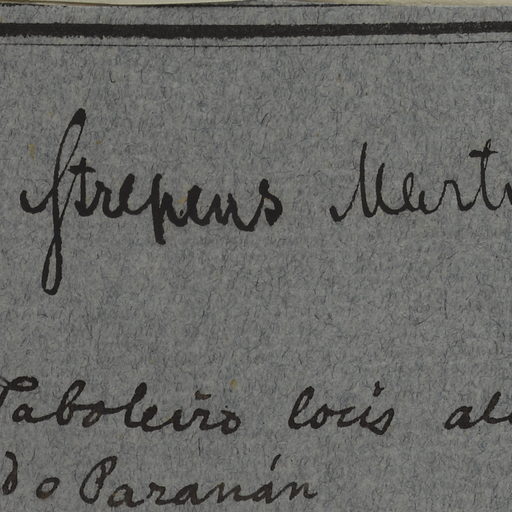 Strepens Mart
Taboleiro locis al
d o Paranán